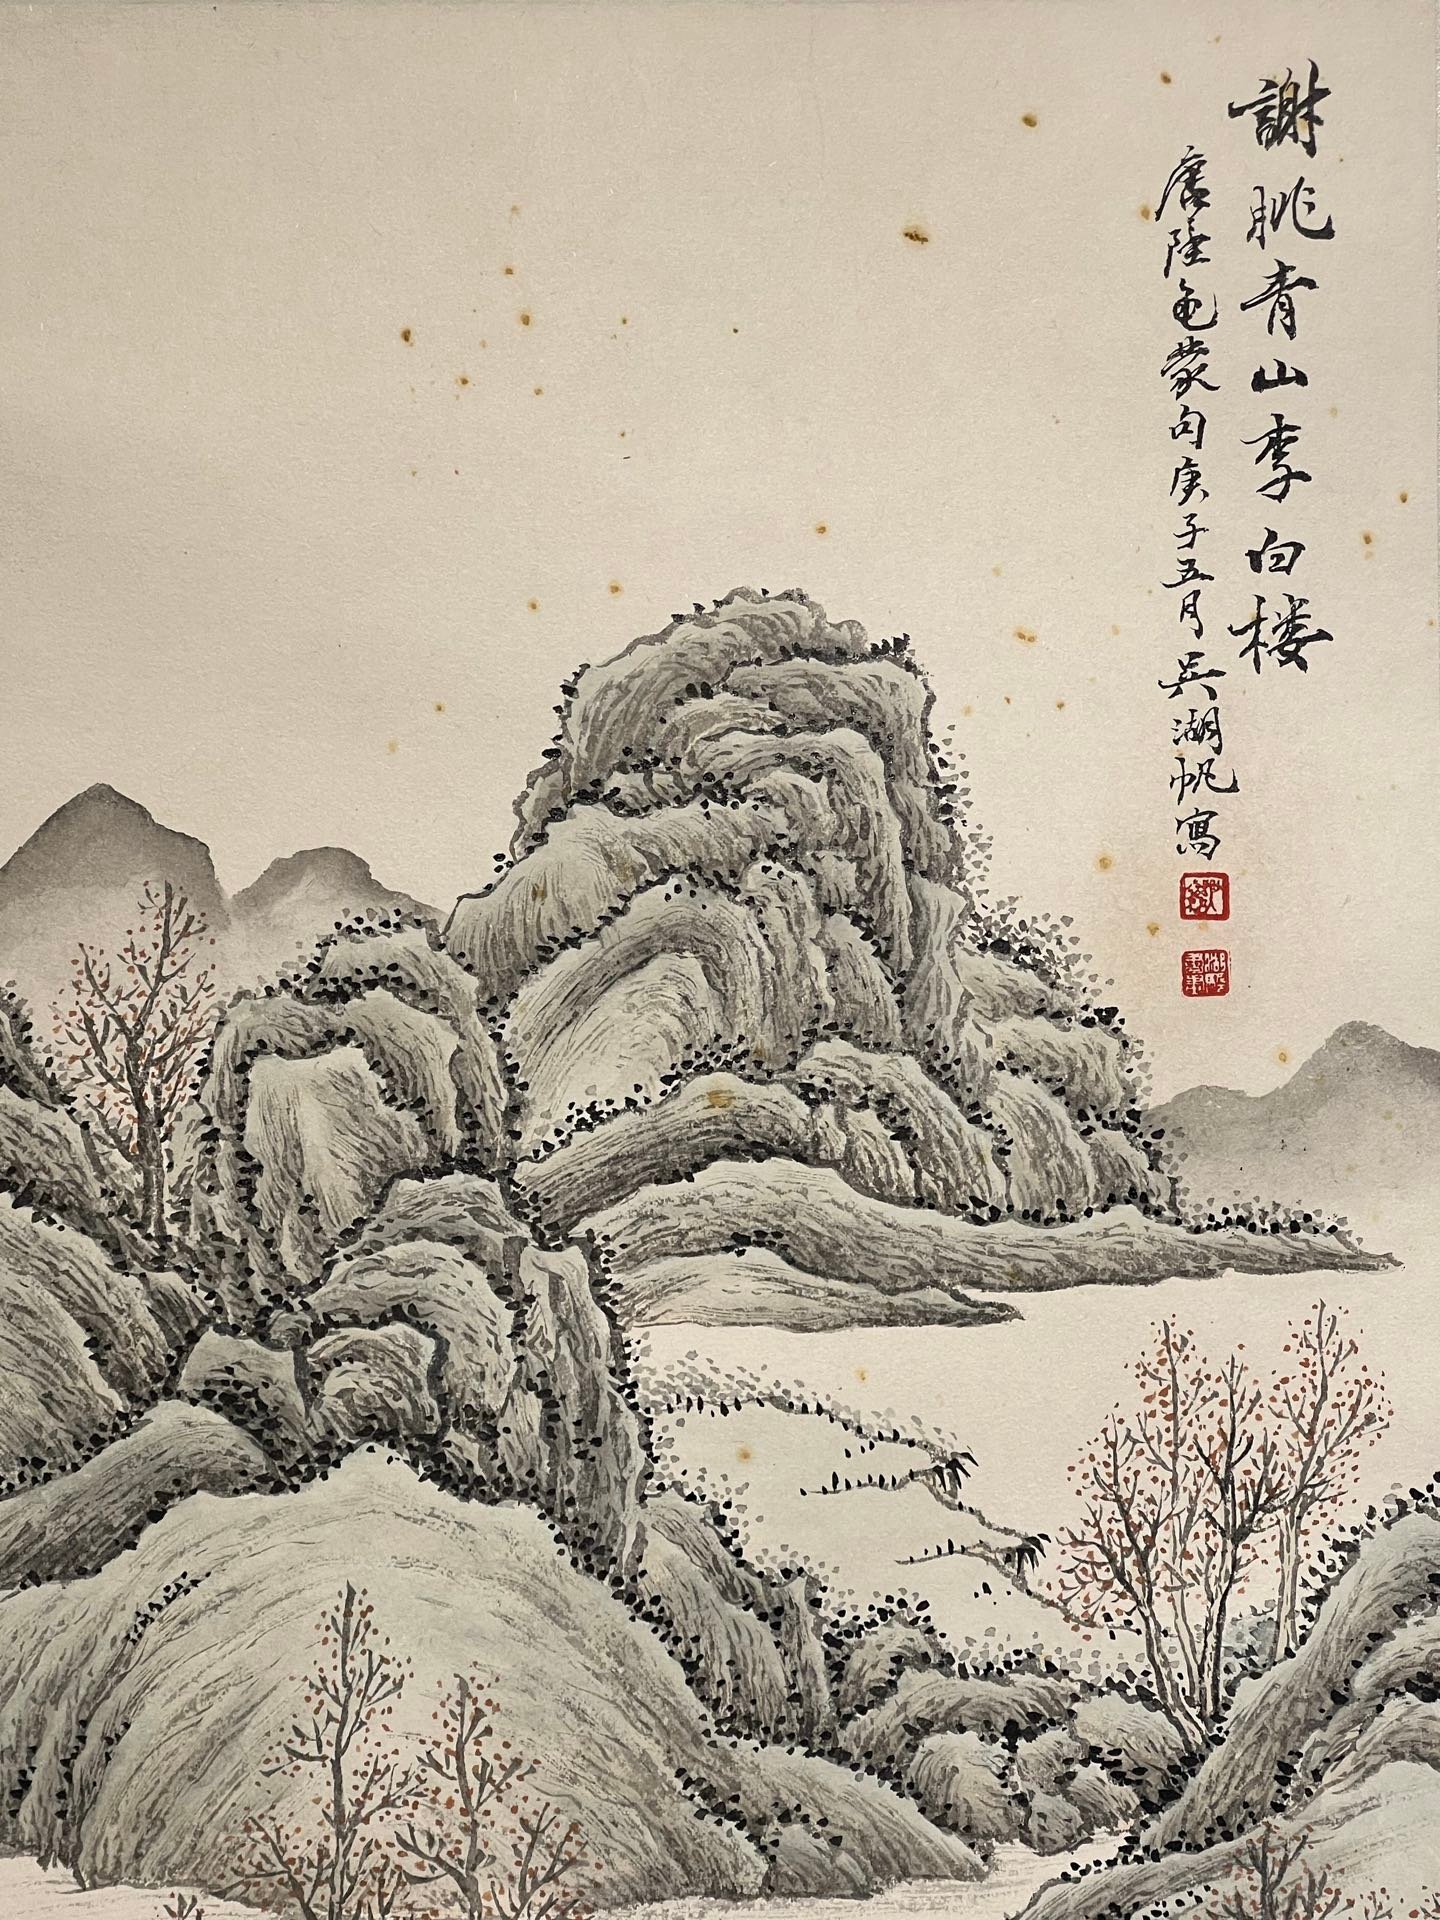 謝朓青山李白楼
唐陸龟蒙句庚子五月吴湖帆寫